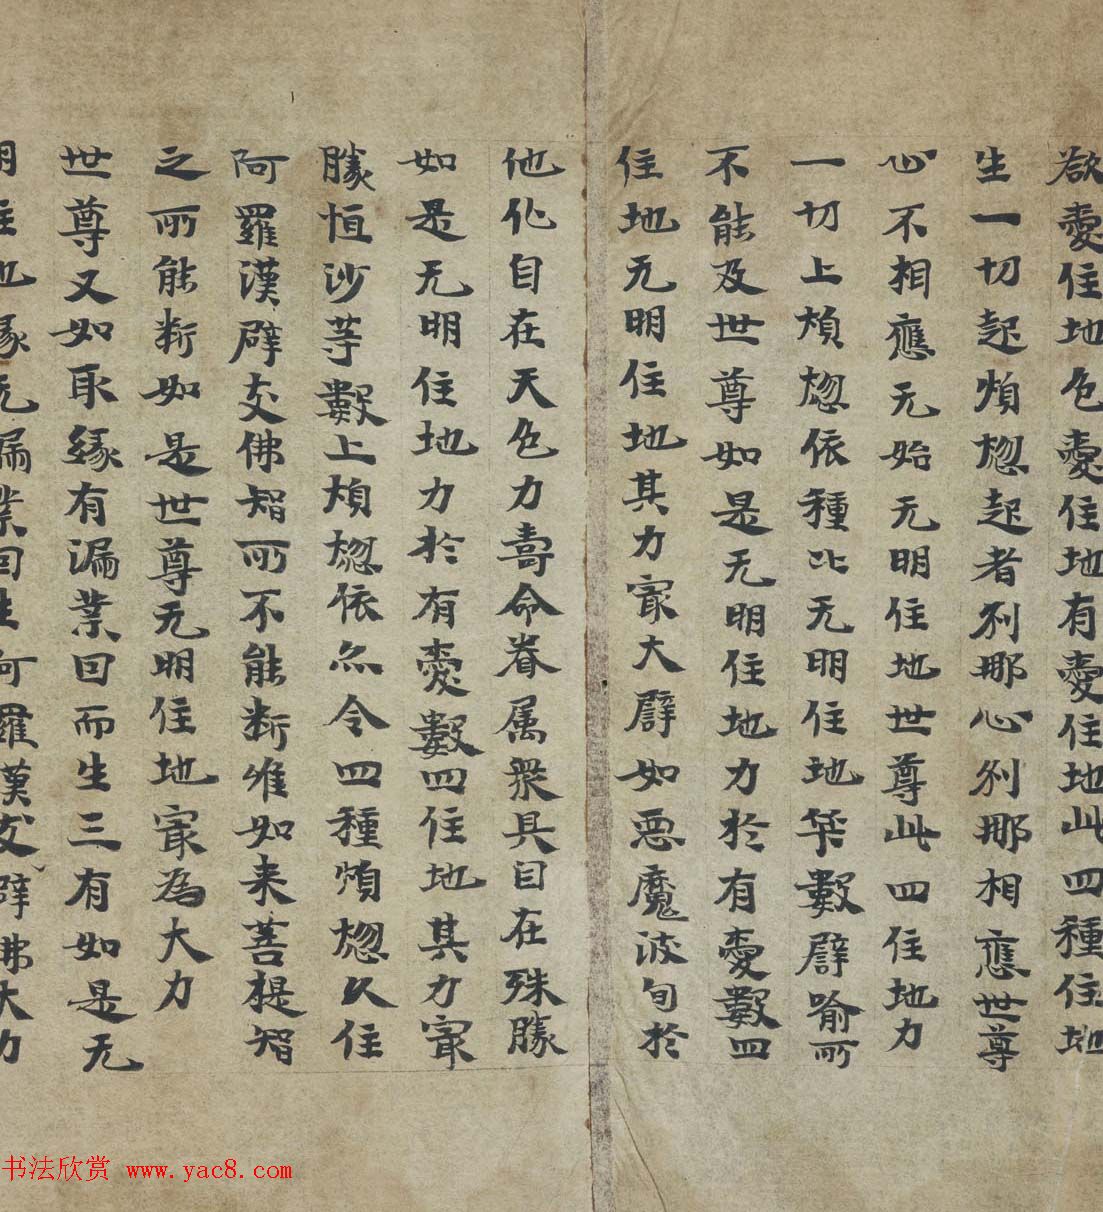 欲愛住地色愛住地有愛住地此四種住地
生一切起煩惱起者刹那心刹那相應世尊
心不相應无始无明住地世尊此四住地力
一切上煩惱依種比无明住地筭數譬喻所
不能及世尊如是无明住地力於有愛數四
住地无明住地其力冣大譬如惡魔波旬於
他化自在天色力壽命眷属衆具自在殊勝
如是无明住地力於有愛數四住地其力冣
勝恒沙等數上煩惱依亦令四種煩惱久住
阿羅漢辟支佛智所不能断唯如来菩提智
之所能断如是世尊无明住地冣為大力
世尊又如取緣有漏業因而生三有如是无
明住地緣无漏業因生阿羅漢支辟佛大力
书法欣赏 www.yac8.com